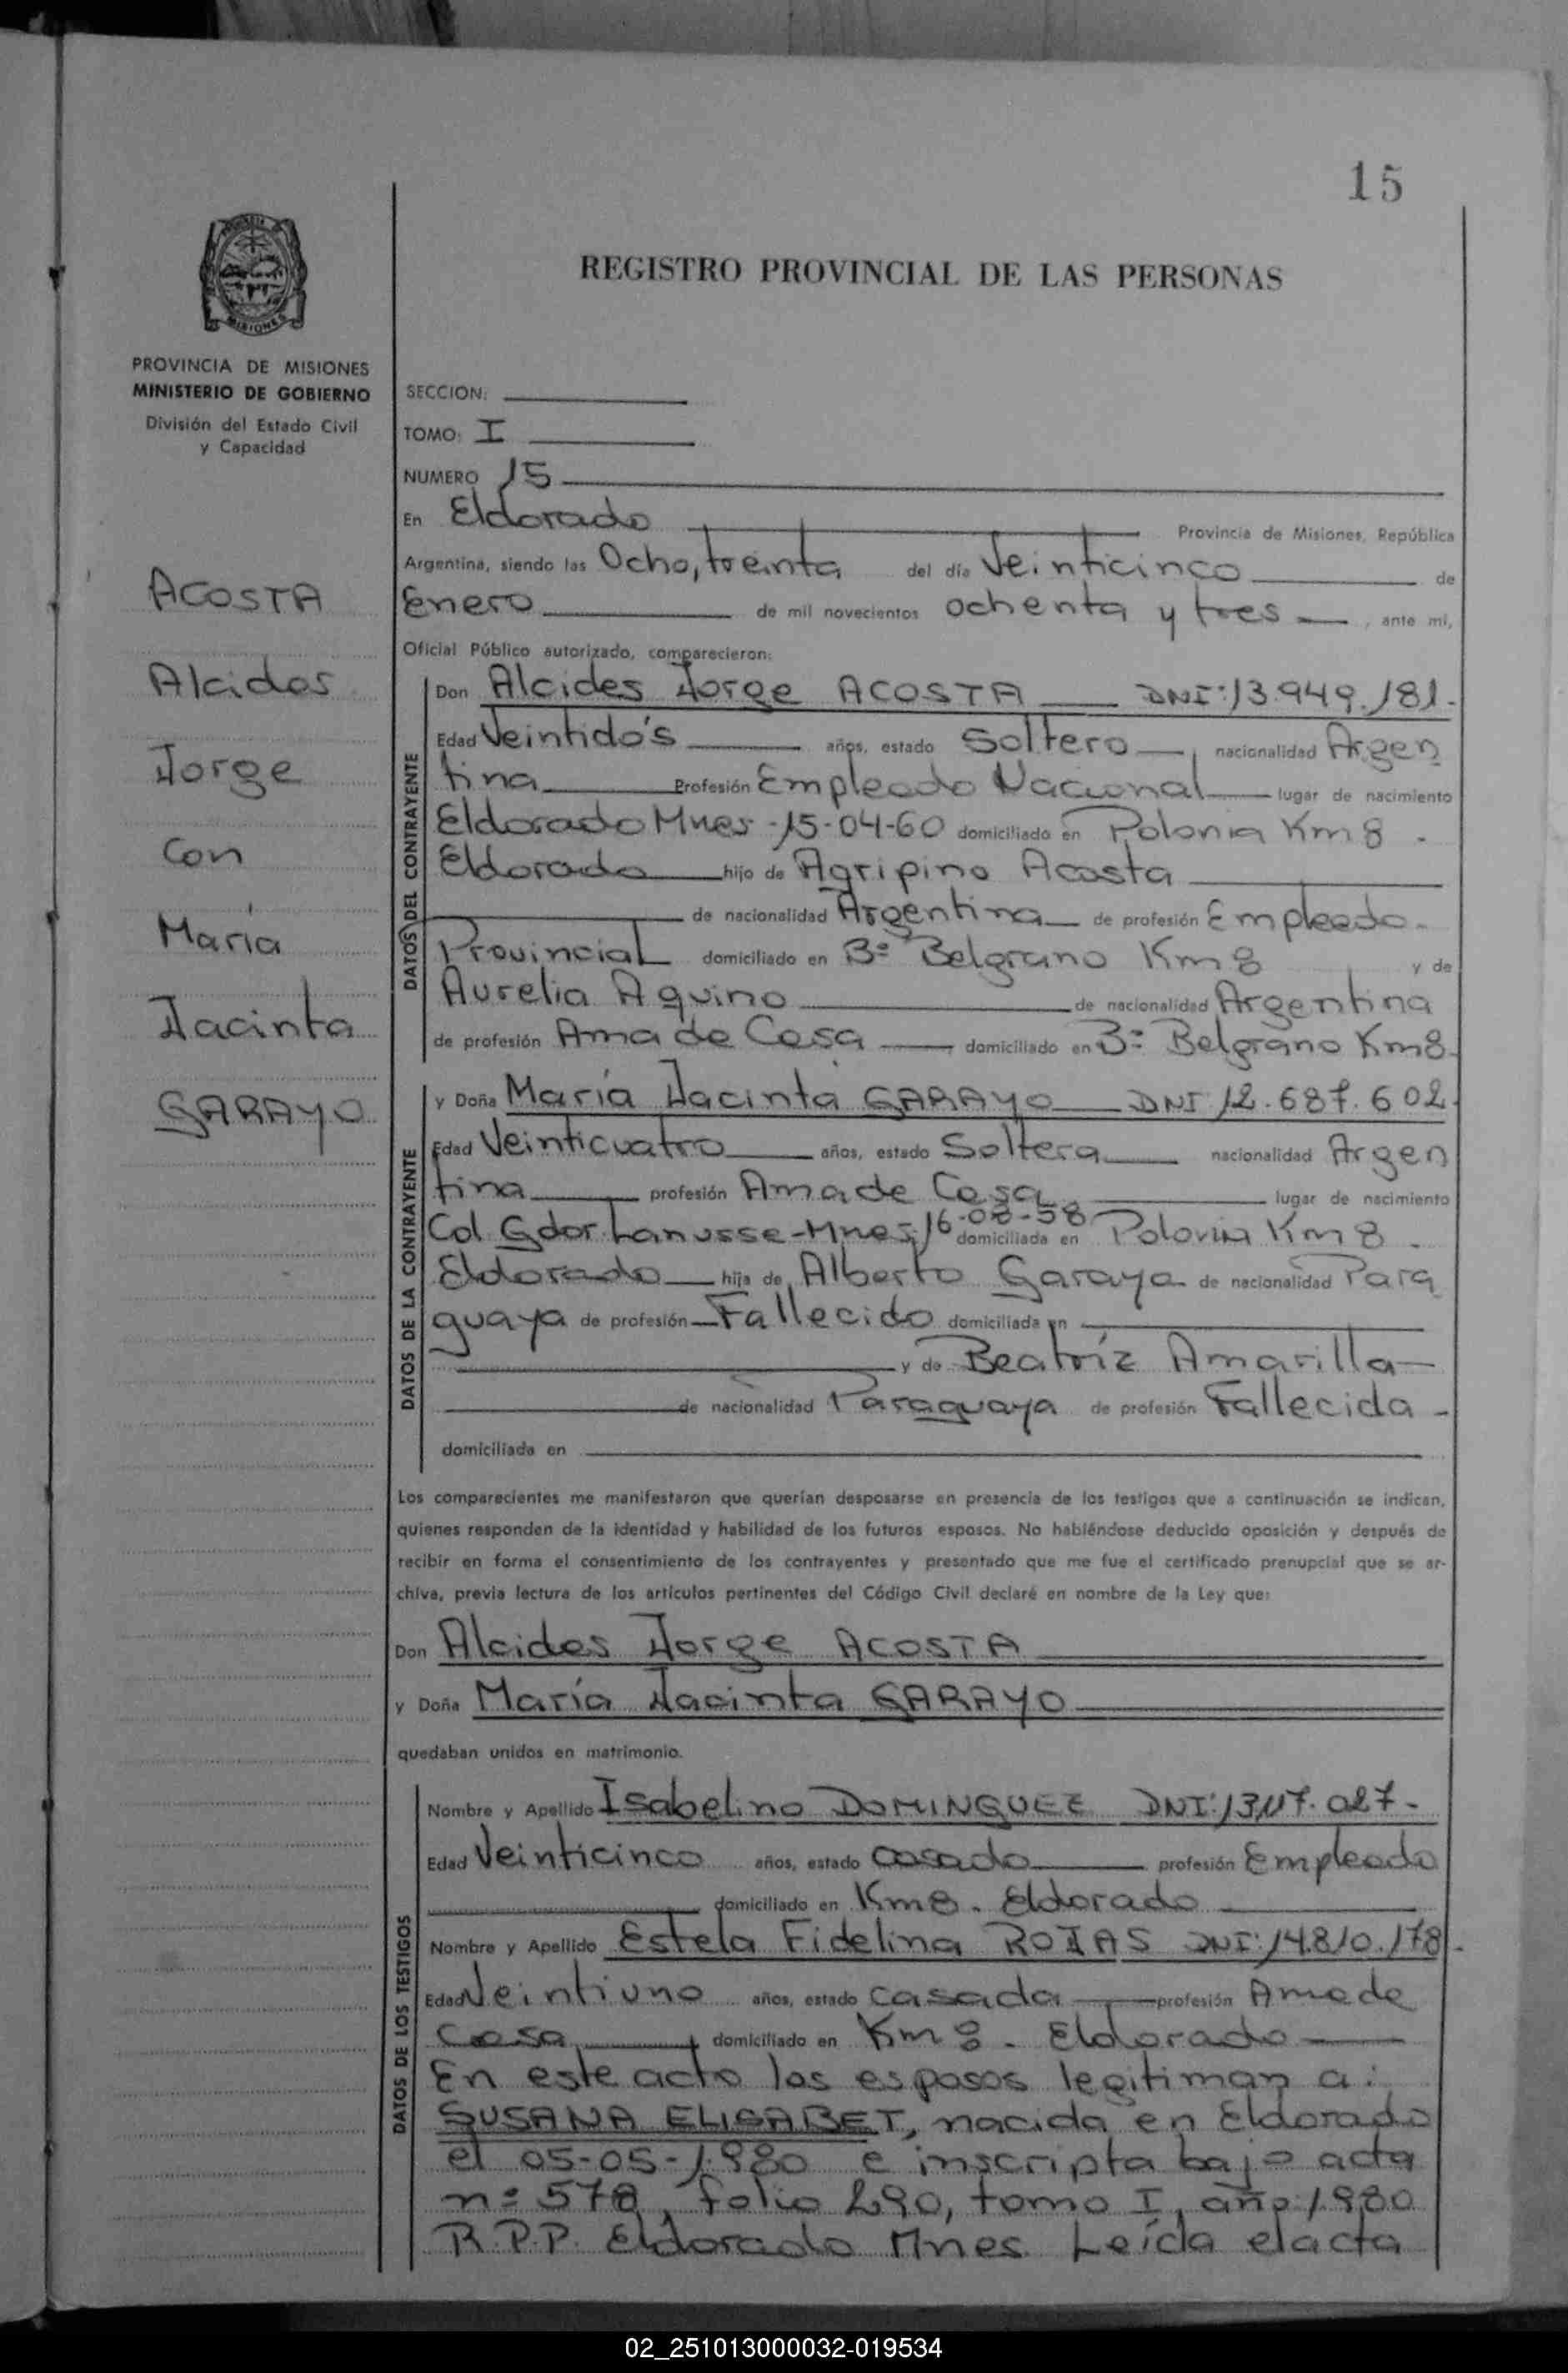 15
REGISTRO PROVINCIAL DE LAS PERSONAS
MISIONES
PROVINCIA DE MISIONES
MINISTERIO DE GOBIERNO
División del Estado Civil
y Capacidad
ACOSTA
Alcides
Jorge
Con
María
Jacinta
GARAYO
SECCION:
TOMO: I
NUMERO 15
En Eldorado Provincia de Misiones, República
Argentina, siendo las Ocho, treinta del día Veinticinco de
Enero de mil novecientos ochenta y tres, ante mi,
Oficial Público autorizado, comparecieron:
DATOS DEL CONTRAYENTE
Don Alcides Jorge ACOSTA DNI: 13.949.181.
Edad Veintidós años, estado Soltero, nacionalidad Argen
tina Profesión Empleado Nacional lugar de nacimiento
Eldorado Mnes - 15-04-60 domiciliado en Polonia Km 8 -
Eldorado hijo de Agripino Acosta
de nacionalidad Argentina de profesión Empleado
Provincial domiciliado en Bº Belgrano Km 8 y de
Aurelia Aquino de nacionalidad Argentina
de profesión Ama de Casa, domiciliado en Bº Belgrano Km 8.
DATOS DE LA CONTRAYENTE
y Doña María Jacinta GARAYO DNI 12.687.602.
Edad Veinticuatro años, estado Soltera nacionalidad Argen
tina profesión Ama de Casa lugar de nacimiento
Col. Gdor. Lanusse - Mnes; 16-08-58 domiciliada en Polonia Km 8 -
Eldorado hija de Alberto Garayo de nacionalidad Para
guaya de profesión Fallecido domiciliada en
y de Beatríz Amarilla
de nacionalidad Paraguaya de profesión Fallecida -
domiciliada en
Los comparecientes me manifestaron que querían desposarse en presencia de los testigos que a continuación se indican,
quienes responden de la identidad y habilidad de los futuros esposos. No habiéndose deducido oposición y después de
recibir en forma el consentimiento de los contrayentes y presentado que me fue el certificado prenupcial que se ar-
chiva, previa lectura de los artículos pertinentes del Código Civil declaré en nombre de la Ley que:
Don Alcides Jorge ACOSTA
y Doña María Jacinta GARAYO
quedaban unidos en matrimonio.
DATOS DE LOS TESTIGOS
Nombre y Apellido Isabelino DOMINGUEZ DNI: 13.117.027-
Edad Veinticinco años, estado casado profesión Empleado
domiciliado en Km 8. Eldorado
Nombre y Apellido Estela Fidelina ROJAS DNI: 14.810.178.
Edad Veintiuno años, estado casada profesión Ama de
Casa domiciliado en Km 8 - Eldorado
En este acto los esposos legitiman a:
SUSANA ELISABET, nacida en Eldorado
el 05-05-1.980 e inscripta bajo acta
nº 578, folio 290, tomo I, año 1.980
R.P.P. Eldorado Mnes. Leída el acta
02_251013000032-019534